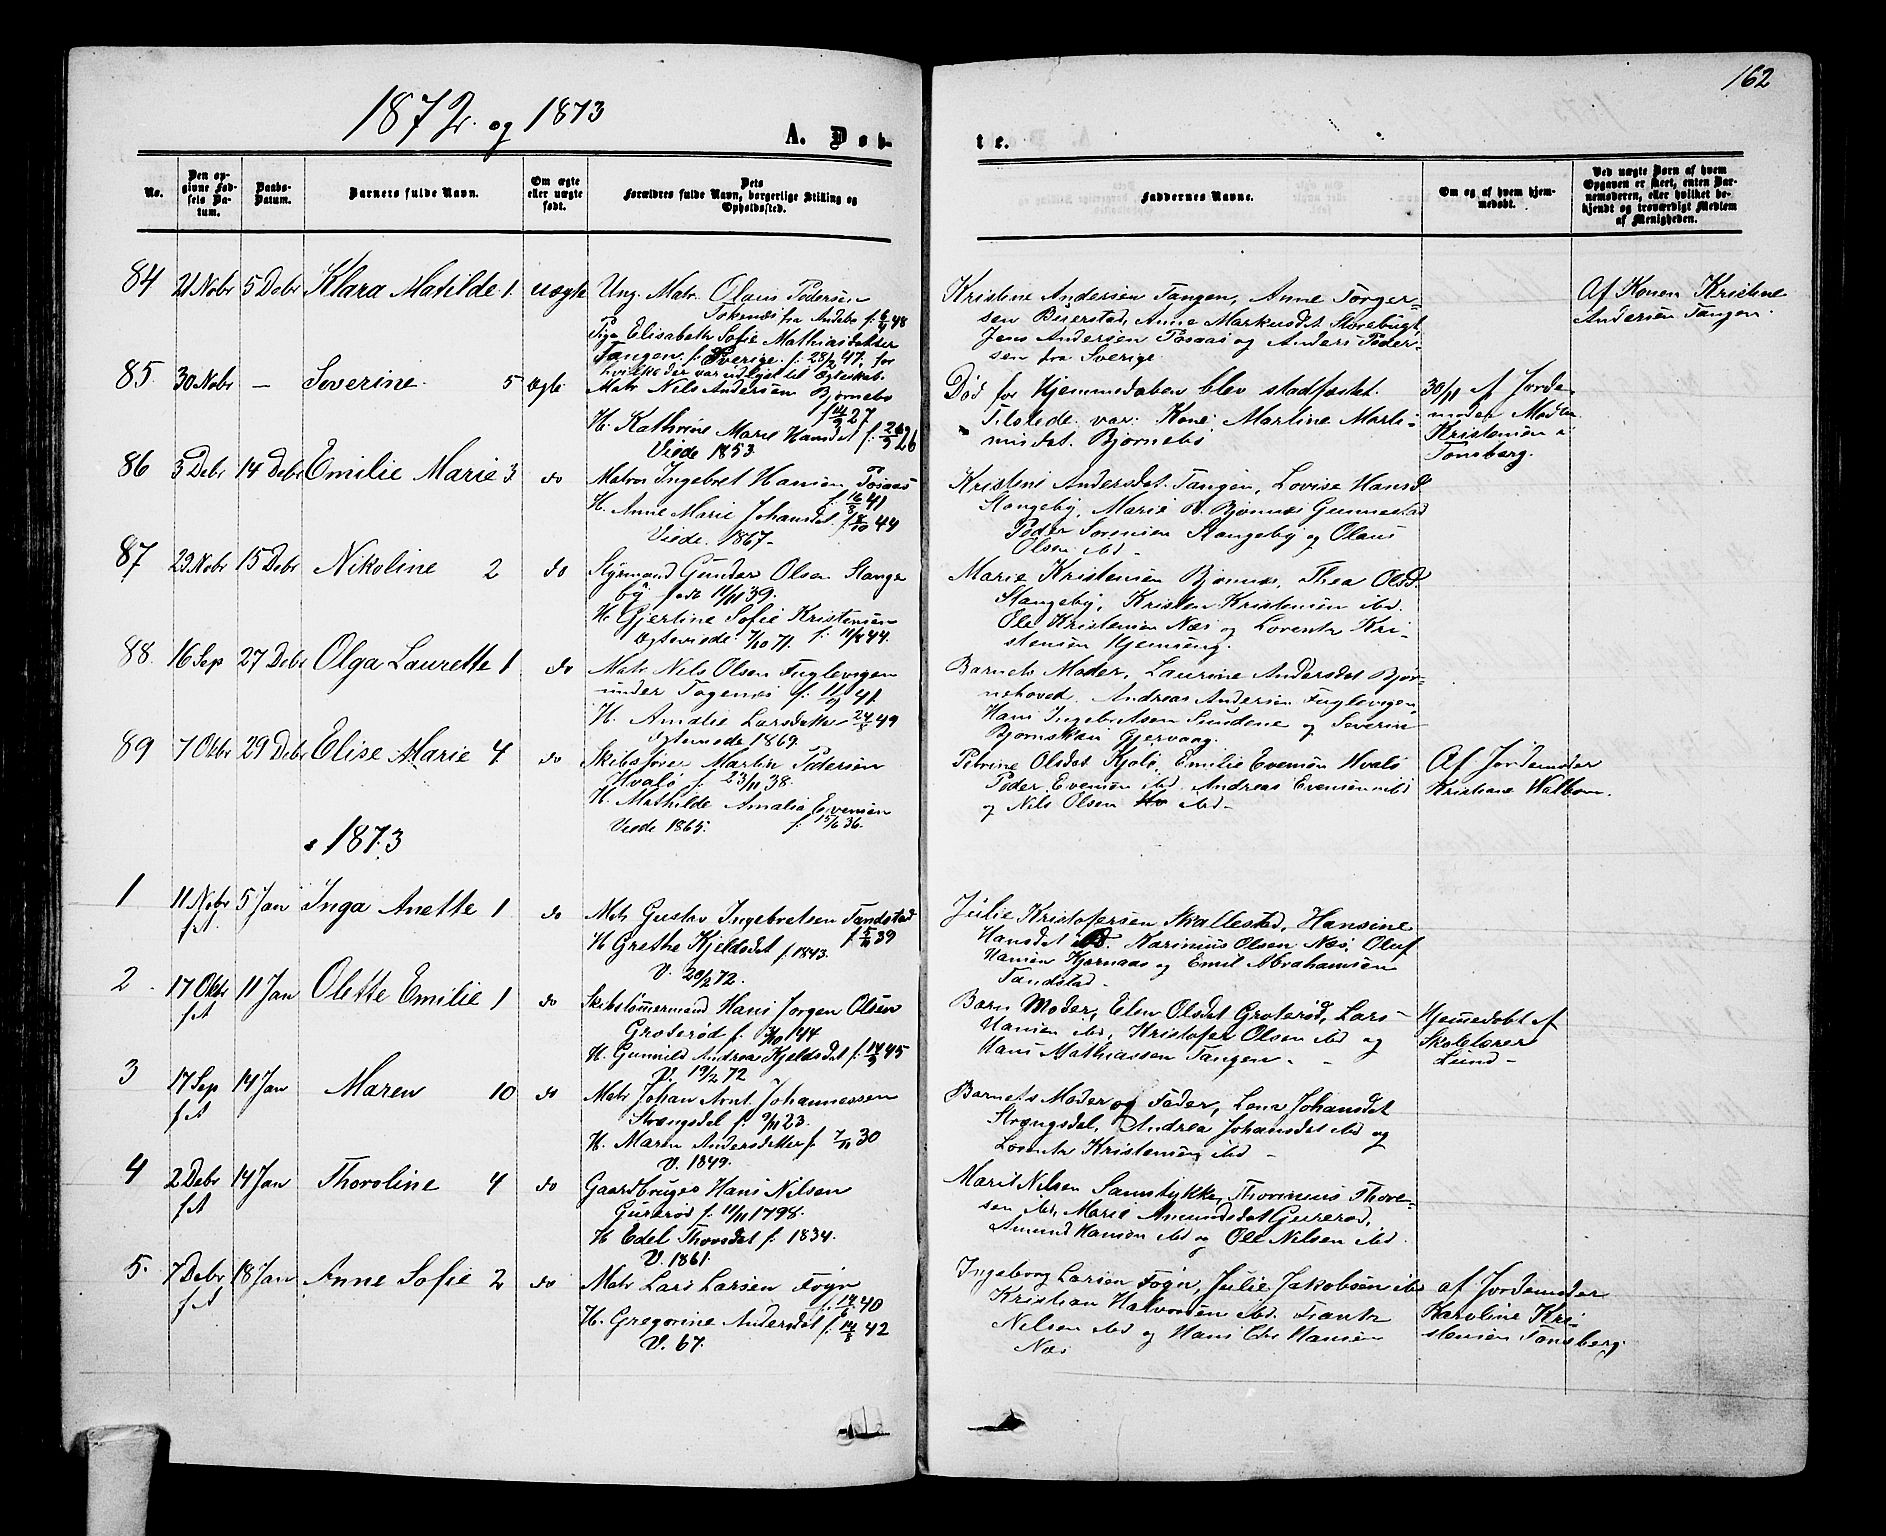 162
1872 og 1873
A. Dø b-
t e.
No.
Den op-
givne Fød-
sels Da-
tum.
Daabs-
Datum.
Barnets fulde Navn.
Om ægte
eller uægte
født.
Dets
Forældres fulde Navn, borgerlige Stilling og
Opholdssted.
Faddernes Navne.
Om og af hvem hjem-
medøbt.
Ved uægte Børn af hvem
Opgaven er skeet, enten Bar-
nemoderen, eller hvilket be-
kjendt og troværdigt Medlem
af Menigheden.
84 21 Nobr 5 Debr Klara Matilde 1. uægte Ung. Matr. Olaus Pedersen
fra Andebu f. 48
Pige Elisabeth Sofie Mathiasdatter
Tangen. f. Sverige. f. 28/2 47, for
hvilke der var udlyst til Ægteskab.
Kristine Andersen Tangen, Anne Torger-
sen Beierstad, Anne Markusdt. Storebugt,
Jens Andersen Posaas og Anders Peder-
sen fra Sverige.
Af Konen Kristine
Andersen Tangen.
85. 30 Nobr — Severine. 5 ægte Matr Nils Andersen Bjørnebo
f. 27
H. Kathrine Marie Hansdt f. 26
Viede 1853.
Død før Hjemmedaben blev stadfæstet.
Tilstede var: Kone Martine Marti-
nusdat. Bjørnebo
30/11 af Jorde-
moder Madm.
Kristensen i
Tønsberg.
86 3 Debr 14 Debr Emilie Marie 3 do Matros Ingebret Hansen Posaas
f. 16/8 41
H. Anne Marie Johansdt f. 44
Viede. 1867-
Kristine Andersdt. Tangen, Lovise Hansd.
Stangeby, Marie Bjønnes Gunnestad
Peder Sørensen Stangeby og Olaus
Olsen ibd -
87 23 Nobr 15 Debr Nikoline 2 do Styrmand Gunder Olsen Stange-
by født 11/11 39.
H. Gjertine Sofie Kristensen
Ægteviede 7/10 71. f. 11/8 44.
Marie Kristensen Bjønnes, Thea Olsd.
Stangeby, Kristen Kristensen ibd.
Ole Kristensen Næs og Lorentz Kri-
stensen Hjemseng.
88. 16 Sep 27 Debr Olga Laurette 1 do Matr Nils Olsen Fuglevigen
under Togenes f. 11/9 41.
H. Amalie Larsdatter 24/8 49
Ægteviede 1869.
Barnets Moder, Laurine Andersdat Bjør-
nehoved. Andreas Andersen Fuglevigen,
Hans Ingebretsen Sundene og Severin
Bjørnskau Gjervaag.
89 7 Oktbr 29 Debr Elise Marie 4 do Skibsfører Martin Pedersen
Hvalø f. 23/11 38.
H. Mathilde Amalia Evensen
Viede 1865. f. 15/6 36.
Petrine Olsdat Kjøle, Emilie Evensen Hvalø
Peder Evensen ibd. Andreas Evensen ibd
og Nils Olsen ibd -
Af Jordemoder
Kristiane Walbom.
1873
1 11 Nobr 5 Jan Inga Anette 1 do Matr Gustav Ingebretsen Tandstad
f. A. f. 39
H Grethe Kjeldsdat f. 1843.
V. 20/2 72.
Julie Kristofersen Skallestad, Hansine
Hansdat ibd. Karinius Olsen Næs, Oluf
Hansen Kjærnaas og Emil Abrahamsen
Tandstad -
2. 17 Oktbr 11 Jan Olette Emilie 1 do Skibstømmermand Hans Jørgen Olsen
f. A Groterød f. 3/10 44
H. Gunnild Andrea Kjeldsdat f. 14/9 45
V. 19/2 72
Barns Moder, Elen Olsdat Groterød, Lars
Hansen ibd, Kristofer Olsen ibd og
Hans Mathiassen Tangen -
Hjemedøbt af
Skolelærer
Lund -
3 17 Sep 14 Jan Maren 10 do Matr Johan Arnt Johannessen
f. A Strængsdal f. 9/11 23.
H. Maren Andersdatter f. 30
V. 1849.
Barnets Moder og Fader, Lena Johansdat
Strængsdal, Andrea Johansdat ibd og
Lorentz Kristensen ibd -
4 2 Debr 14 Jan Thoroline 4 do Gaardbruger Hans Nilsen
f. A Gurerød f. 11/11 1798.
H Edel Thorsdat f. 1834.
V. 1861.
Marit Nilsen Samstykke, Thorinius Thore-
sen ibd, Marie Amundsdat Gurerød,
Amund Hansen ibd og Ole Nilsen ibd.
5. 7 Debr 18 Jan Anne Sofie 2 do Matr Lars Larsen Føyn
f. A f. 14/6 40
H. Gregorine Andersdat f. 14/8 42
V. 67.
Ingeborg Larsen Føyn, Julie Jakobsen ibd
Kristian Halvorsen ibd. Frantz
Nilsen ibd og Hans Chr Hansen
Næs
af Jordemoder
Karoline Kri-
stensen Tønsberg.